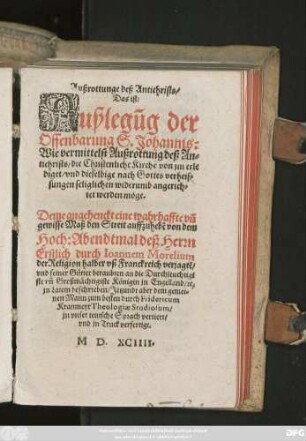 Außrottunge deß Antichrists/
Das ist:
Außlegũg der
Offenbarung S. Johannis:
Wie vermittelst Außrottung deß An-
tichrists/ die Christenliche Kirche von jm erle
diget/ vnd dieselbige nach Gottes verheis-
sungen seliglichen widerumb angerich-
tet werden möge.
Deme angehenckt eine warhaffte vñ
gewisse Maß den Streit auffzuhebẽ von dem
Hoch: Abendtmal deß Herrn
Erstlich durch Ioannem Morelium
der Religion halber vß Franckreich verjagt/
vnd seiner Güter beraubten an die Durchleuchtigst
iste vñ Großmächtigiste Königin in Engelland/ ꝛc/
in Latein beschrieben/ Jetzundt aber dem gemei-
nen Mann zum besten durch Fridericum
Kranmerr Theologiæ Studiosum/
in vnser teutsche Sprach vertiert/
vnd in Truck verfertigt.
M D. XCIIII.